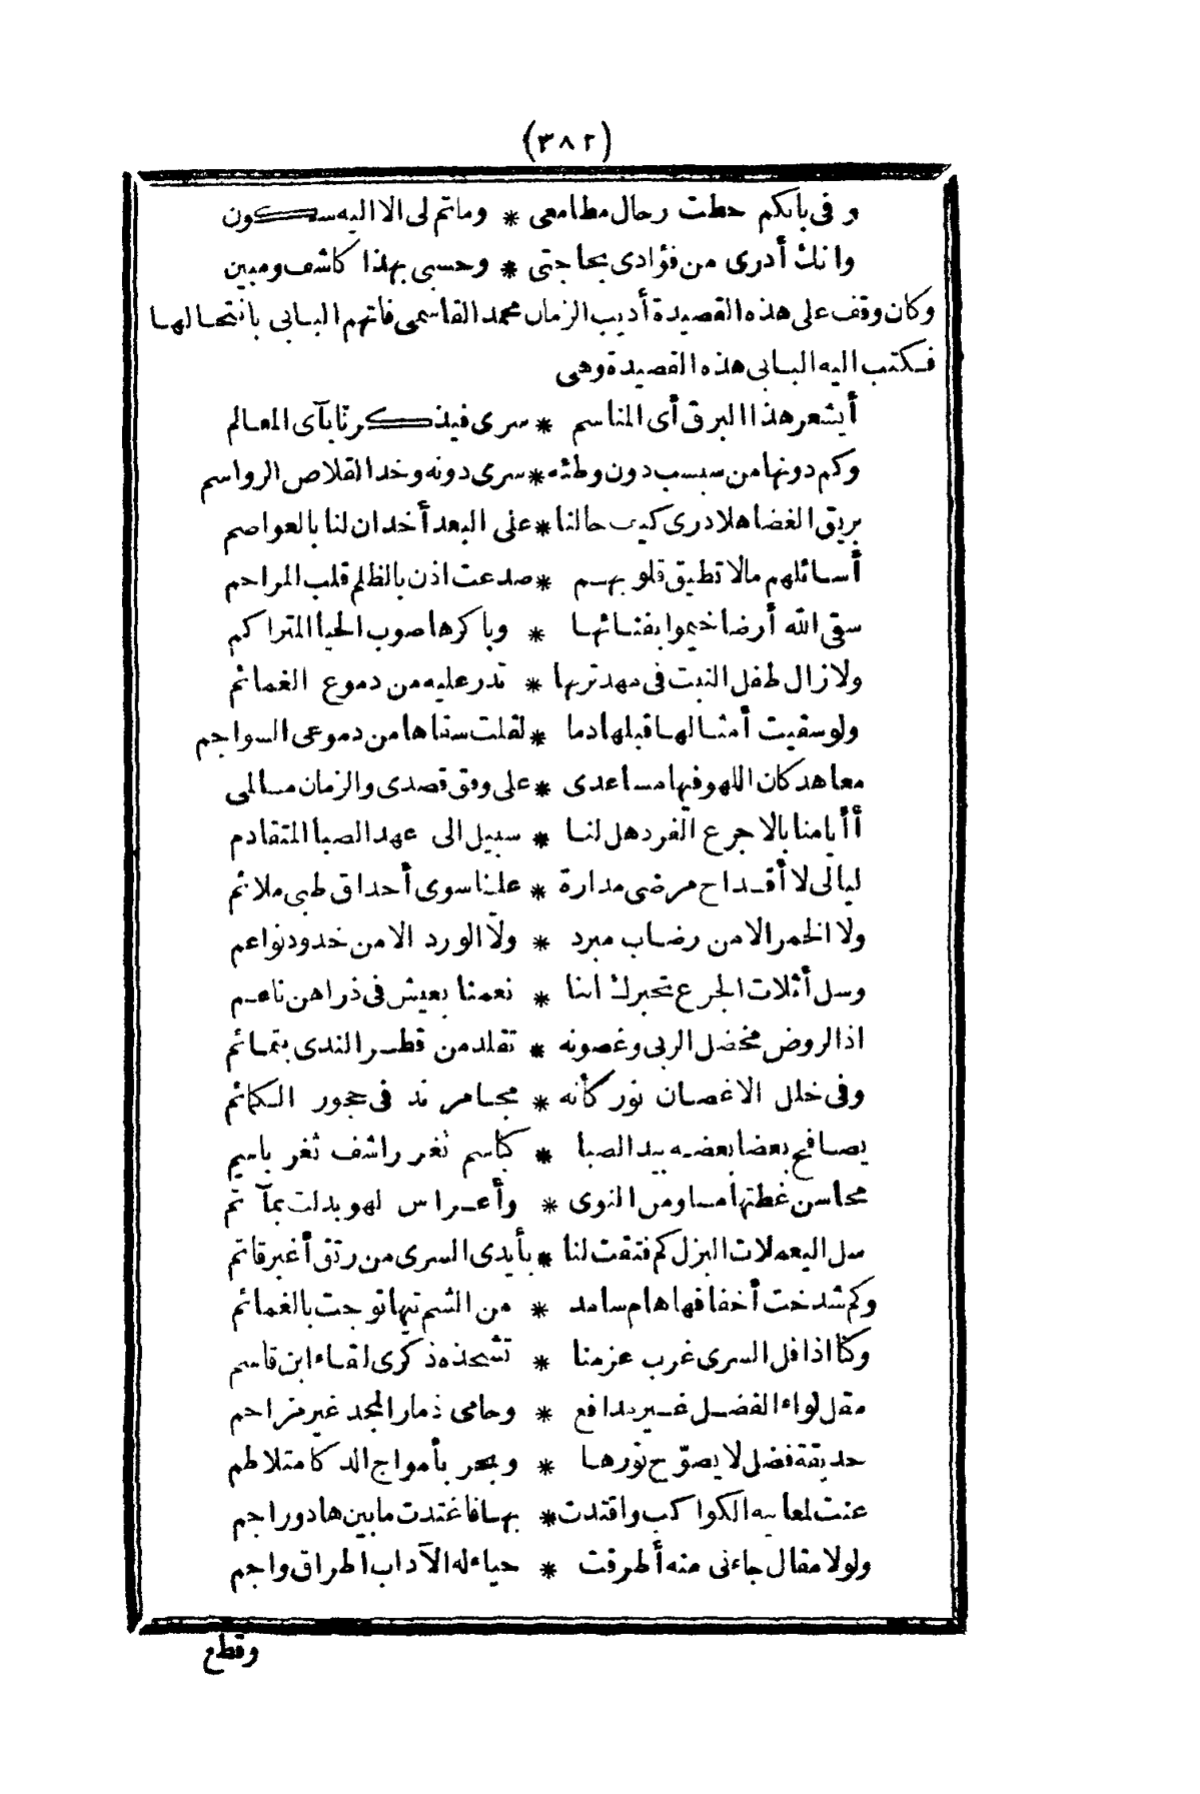 (٣٨٢)
وفى بابكم حطت رحال مطامعى * وماتم لى الا اليه سكون
وانك أدرى من فؤادى بحاجتى * وحسبى بهذا كاشف ومبين
وكان وقف على هذه القصيدة أديب الزمان محمد القاسمى فاتهم البابى بانتحالها
فكتب اليه البابى هذه القصيدة وهى
أيشعر هذا البرق أى المناسم * سرى فيذكرنا بآى المعالم
وكم دونها من سبسب دون وطئه * سرى دونه وخد القلاص الرواسم
بريق الغضا هلا درى كيف حالنا * على البعد أخدان لنا بالعواصم
أسائلهم مالا تطيق قلوبهم * صدعت اذن بالظلم قلب المراحم
سقى الله أرضا خيموا بفنائها * وباكرها صوب الحيا المتراكم
ولازال طفل النبت فى مهد تربها * تدر عليه من دموع الغمائم
ولو سقيت أمثالها قبلها دما * لقلت سقاها من دموعى السواجم
معاهد كان اللهو فيها مساعدى * على وفق قصدى والزمان مسالمى
أأيامنا بالاجرع الفرد هل لنا * سبيل الى عهد الصبا المتقادم
ليالى لا أقداح مرضى مدارة * علينا سوى أحداق ظبى ملائم
ولا الخمر الا من رضاب مبرد * ولا الورد الا من خدود نواعم
وسل أثلات الجرع تخبرك اننا * نعمنا بعيش فى ذراهن ناعم
اذا الروض مخضل الربى وغصونه * تقلد من قطر الندى بتمائم
وفى خلل الاغصان نور كأنه * مجامر ند فى حجور الكمائم
يصافح بعضا بعضه بيد الصبا * كباسم ثغر راشف ثغر باسم
محاسن غطتها مساو من النوى * وأعراس لهو بدلت بمآتم
سل اليعملات البزل كم فتقت لنا * بأيدى السرى من رتق أغبر قاتم
وكم شدخت أخفافها هام سامد * من الشم تيها توجت بالغمائم
وكنا اذا فل السرى غرب عزمنا * تشحذه ذكرى لقاء ابن قاسم
مقل لواء الفضل غير مدافع * وحامى ذمار المجد غير مزاحم
حديقة فضل لا يصوّح نورها * وبحر بأمواج الذكا متلاطم
عنت لمعانيه الكواكب واقتدت * بها فاغتدت ما بين هاد وراجم
ولولا مقال جاءنى منه أطرقت * حياء له الآداب اطراق واجم
وقطع